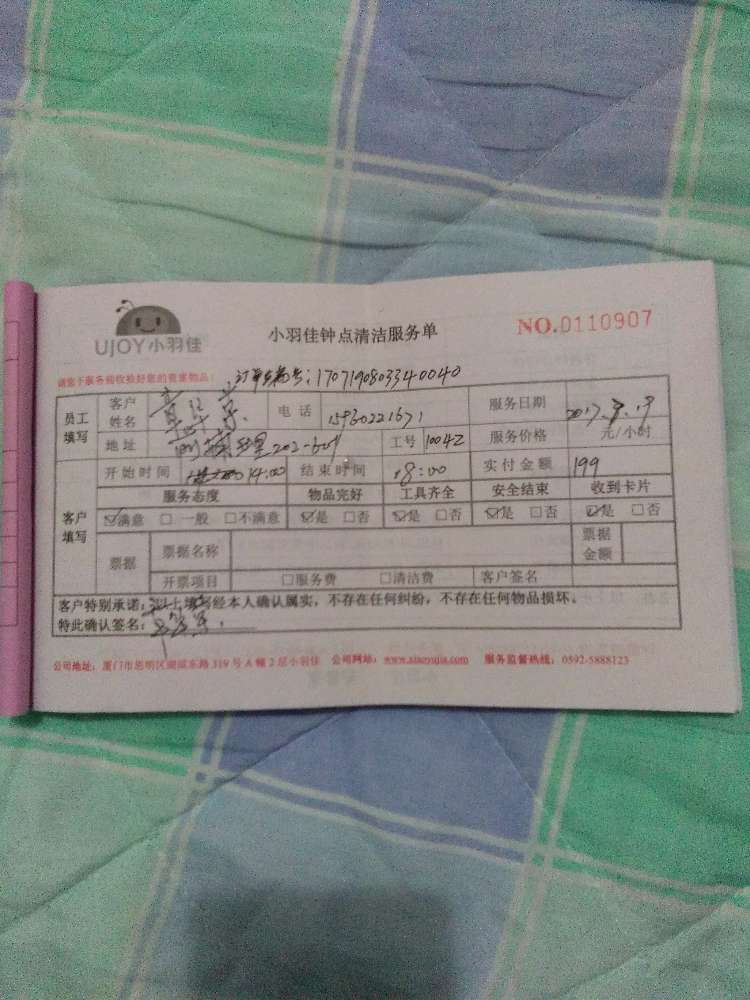 UJOY小羽佳
小羽佳钟点清洁服务单
NO.0110907
请您于服务前收捡好您的贵重物品!
订单编号:1707190803340040
员工填写 客户姓名 电话 15960221671 服务日期 2017.
地址 202-601 工号 10042 服务价格 元/小时
客户填写 开始时间 14:00 结束时间 18:00 实付金额 199
服务态度 物品完好 工具齐全 安全结束 收到卡片
☑满意 □一般 □不满意 ☑是 □否 ☑是 □否 ☑是 □否 ☑是 □否
票据 票据名称 票据金额
开票项目 □服务费 □清洁费 客户签名
客户特别承诺:以上填写经本人确认属实,不存在任何纠纷,不存在任何物品损坏。
特此确认签名:
公司地址:厦门市思明区湖滨东路 319 号 A 幢 2 层小羽佳 公司网站:www.xiaoyujia.com 服务监督热线:0592-5888123